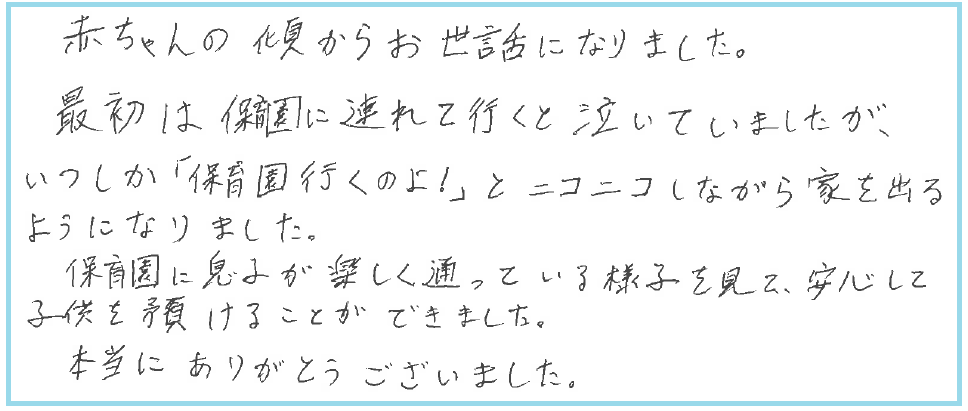 赤ちゃんの頃からお世話になりました。
最初は保育園に連れて行くと泣いていましたが、
いつしか「保育園行くのよ!」とニコニコしながら家を出る
ようになりました。
保育園に息子が楽しく通っている様子を見て、安心して
子供を預けることができました。
本当にありがとうございました。